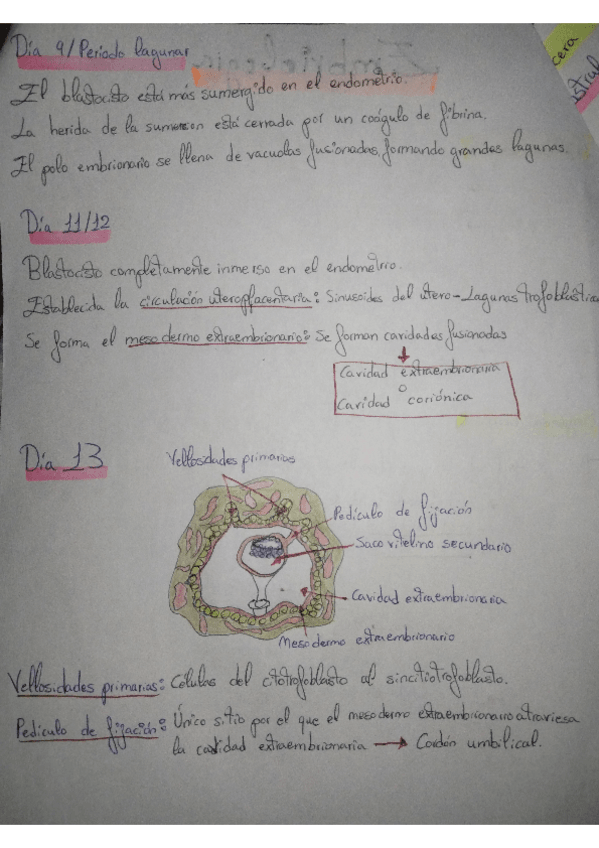 Día 9/Periodo lagunar
El blastocisto está más sumergido en el endometrio.
La herida de la sumersion está cerrada por un coágulo de fibrina.
El polo embrionario se llena de vacuolas fusionadas, formando grandes lagunas.
Día 11/12
Blastocisto completamente inmerso en el endometrio.
Establecida la circulación uteroplacentaria: Sinusoides del útero-Lagunas trofoblástica
Se forma el mesodermo extraembrionario: Se forman cavidades fusionadas
Cavidad extraembrionaria
o
Cavidad coriónica
Día 13
Vellosidades primarias
Pedículo de fijación
Saco vitelino secundario
Cavidad extraembrionaria
Mesodermo extraembrionario
Vellosidades primarias: Células del citotrofoblasto al sincitiotrofoblasto.
Pedículo de fijación: Único sitio por el que el mesodermo extraembrionario atraviesa
la cavidad extraembrionaria → Cordón umbilical.
cera
astral
Embriología